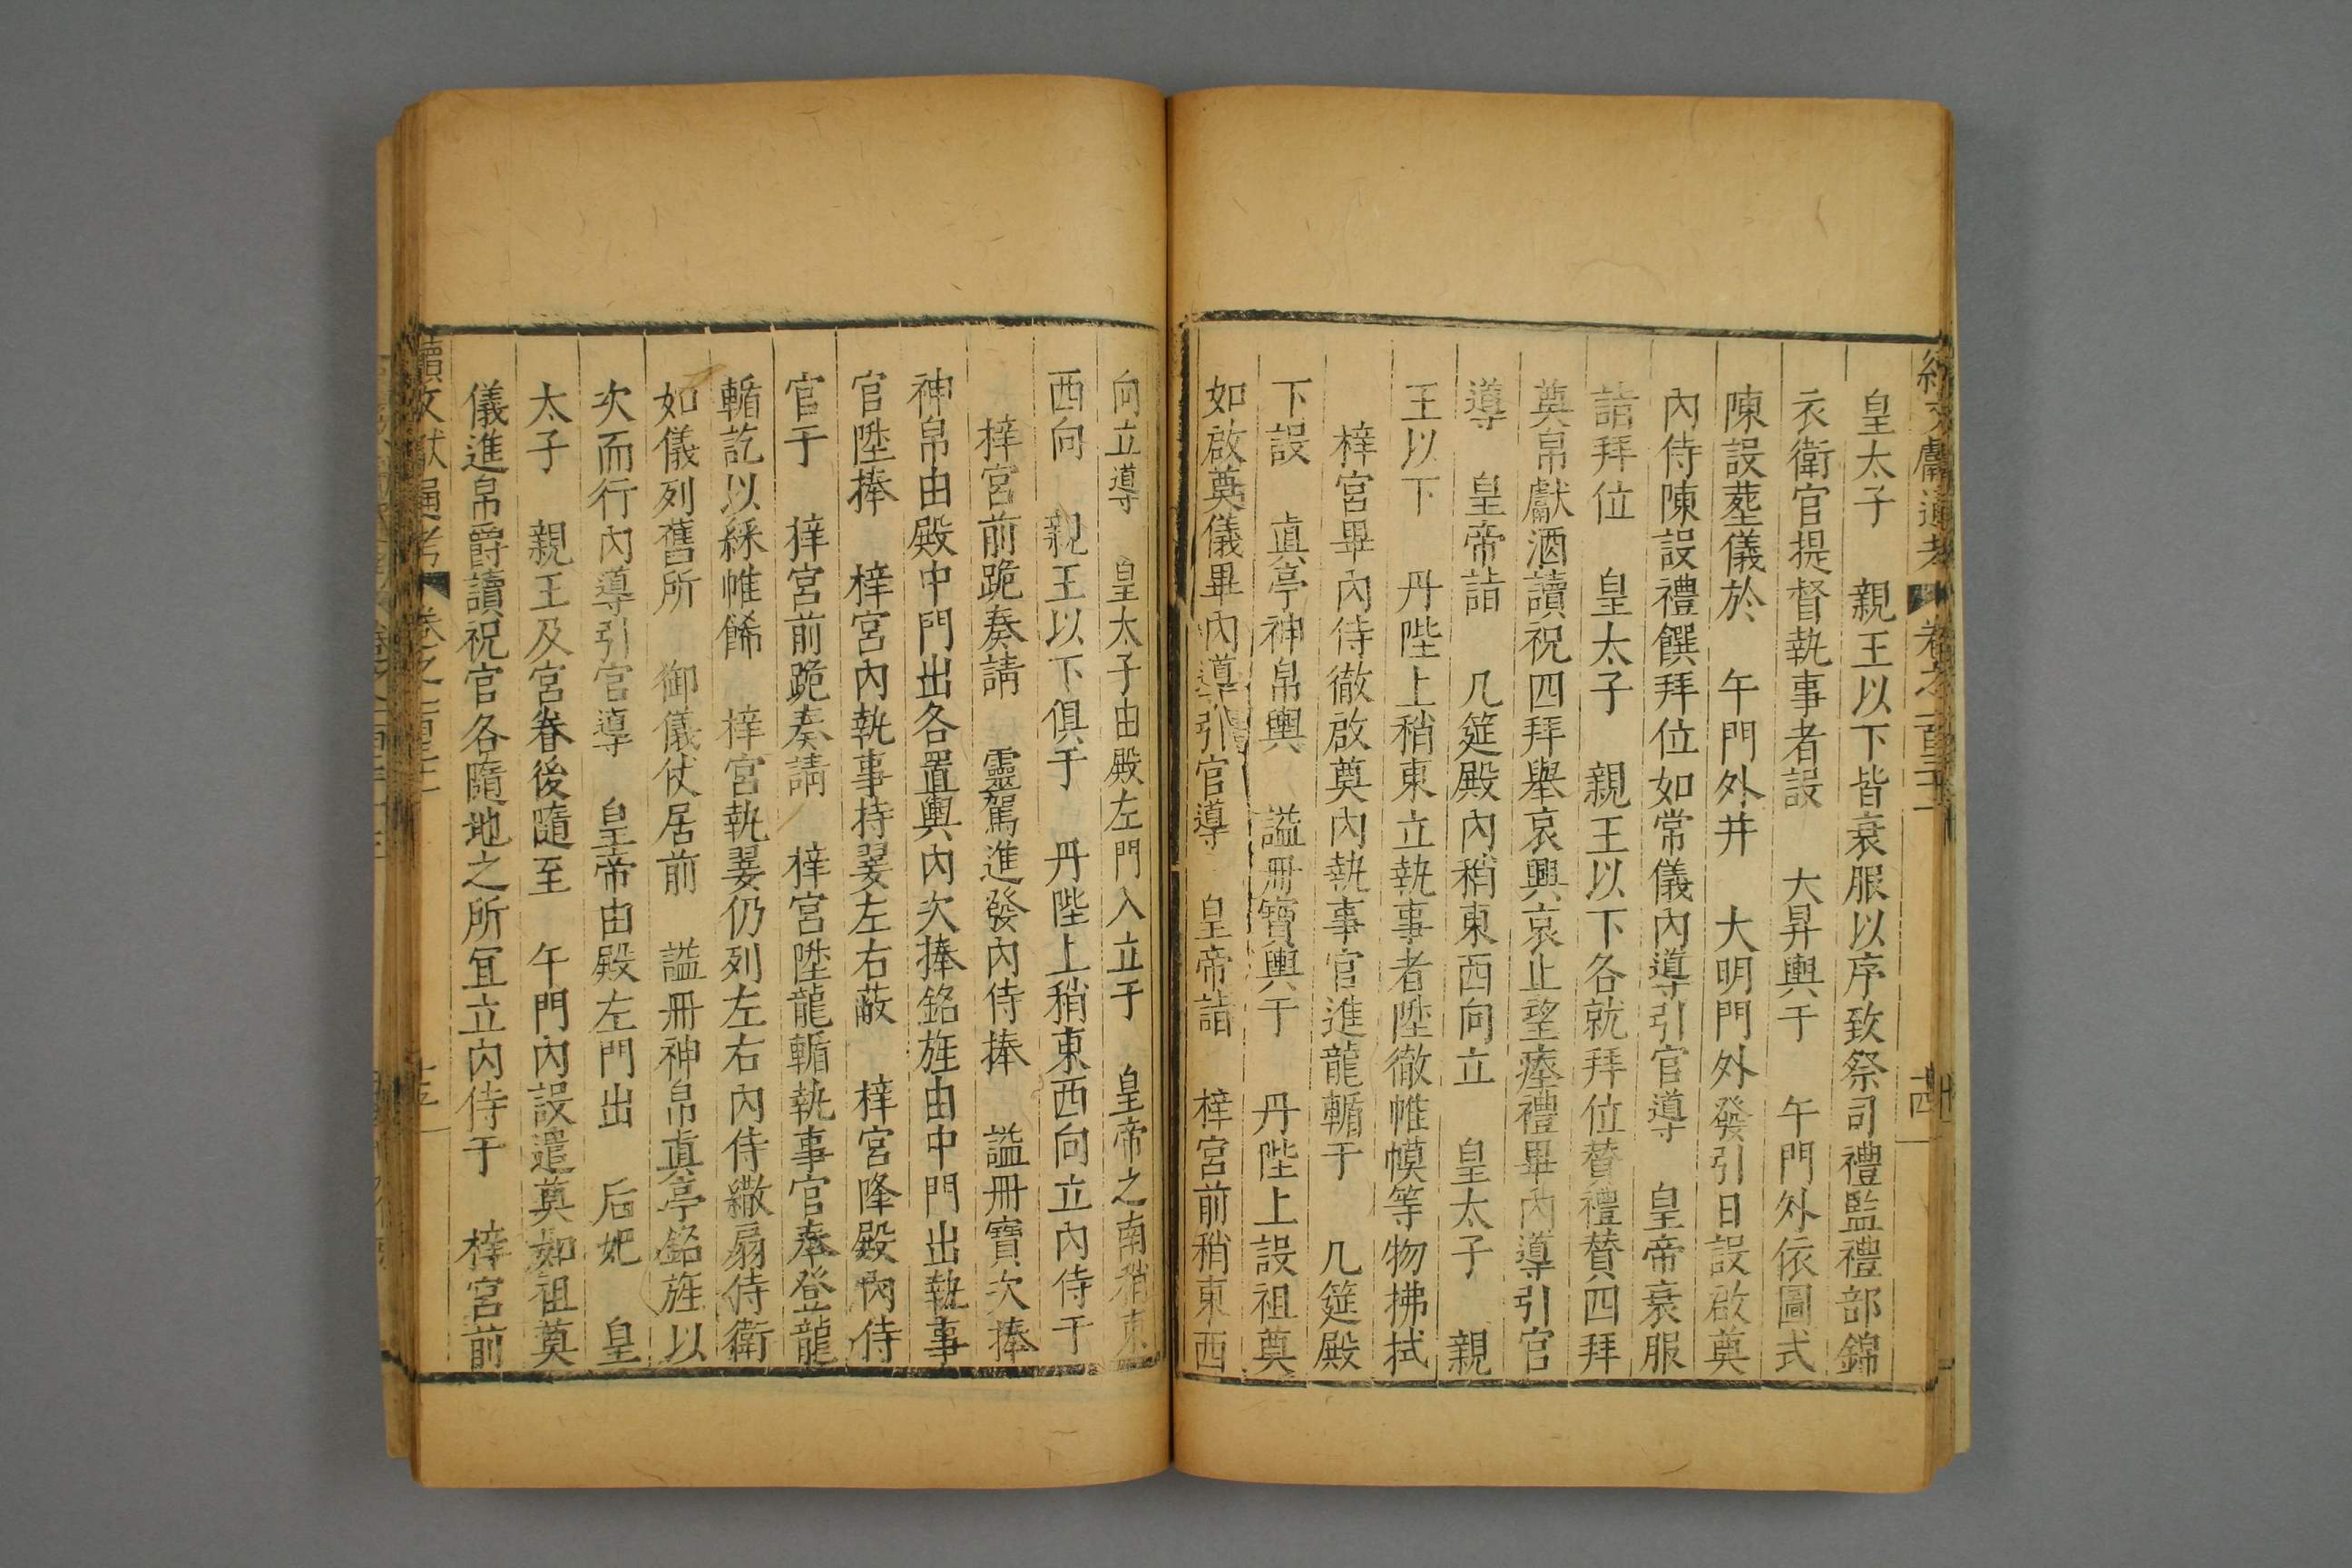 皇太子 親王以下皆衰服以序致祭司禮監禮部錦
衣衛官提督執事者設 大昇輿于 午門外依圖式
陳設葬儀於 午門外并 大明門外發引日設啟奠
內侍陳設禮饌拜位如常儀內導引官導 皇帝衰服
詣拜位 皇太子 親王以下各就拜位贊禮贊四拜
奠帛獻酒讀祝四拜舉哀興哀止望瘞禮畢內導引官
導 皇帝詣 几筵殿內稍東西向立 皇太子 親
王以下 丹陛上稍東立執事者陞徹帷幙等物拂拭
梓宮畢內侍徹啟奠內執事官進龍輴于 几筵殿
下設 真亭神帛輿 謚冊寶輿于 丹陛上設祖奠
如啟奠儀畢內導引官導 皇帝詣 梓宮前稍東西
向立導 皇太子由殿左門入立于 皇帝之南稍東
西向 親王以下俱于 丹陛上稍東西向立內侍于
梓宮前跪奏請 靈駕進發內侍捧 謚冊寶次捧
神帛由殿中門出各置輿內次捧銘旌由中門出執事
官陞捧 梓宮內執事持翣左右蔽 梓宮降殿內侍
官于 梓宮前跪奏請 梓宮陞龍輴執事官奉登龍
輴訖以綵帷餙 梓宮執翣仍列左右內侍繖扇侍衛
如儀列舊所 御儀仗居前 謚冊神帛真亭銘旌以
次而行內導引官導 皇帝由殿左門出 后妃 皇
太子 親王及宮眷後隨至 午門內設遣奠如祖奠
儀進帛爵讀祝官各隨地之所宜立內侍于 梓宮前
續文獻通考 卷之一百三十